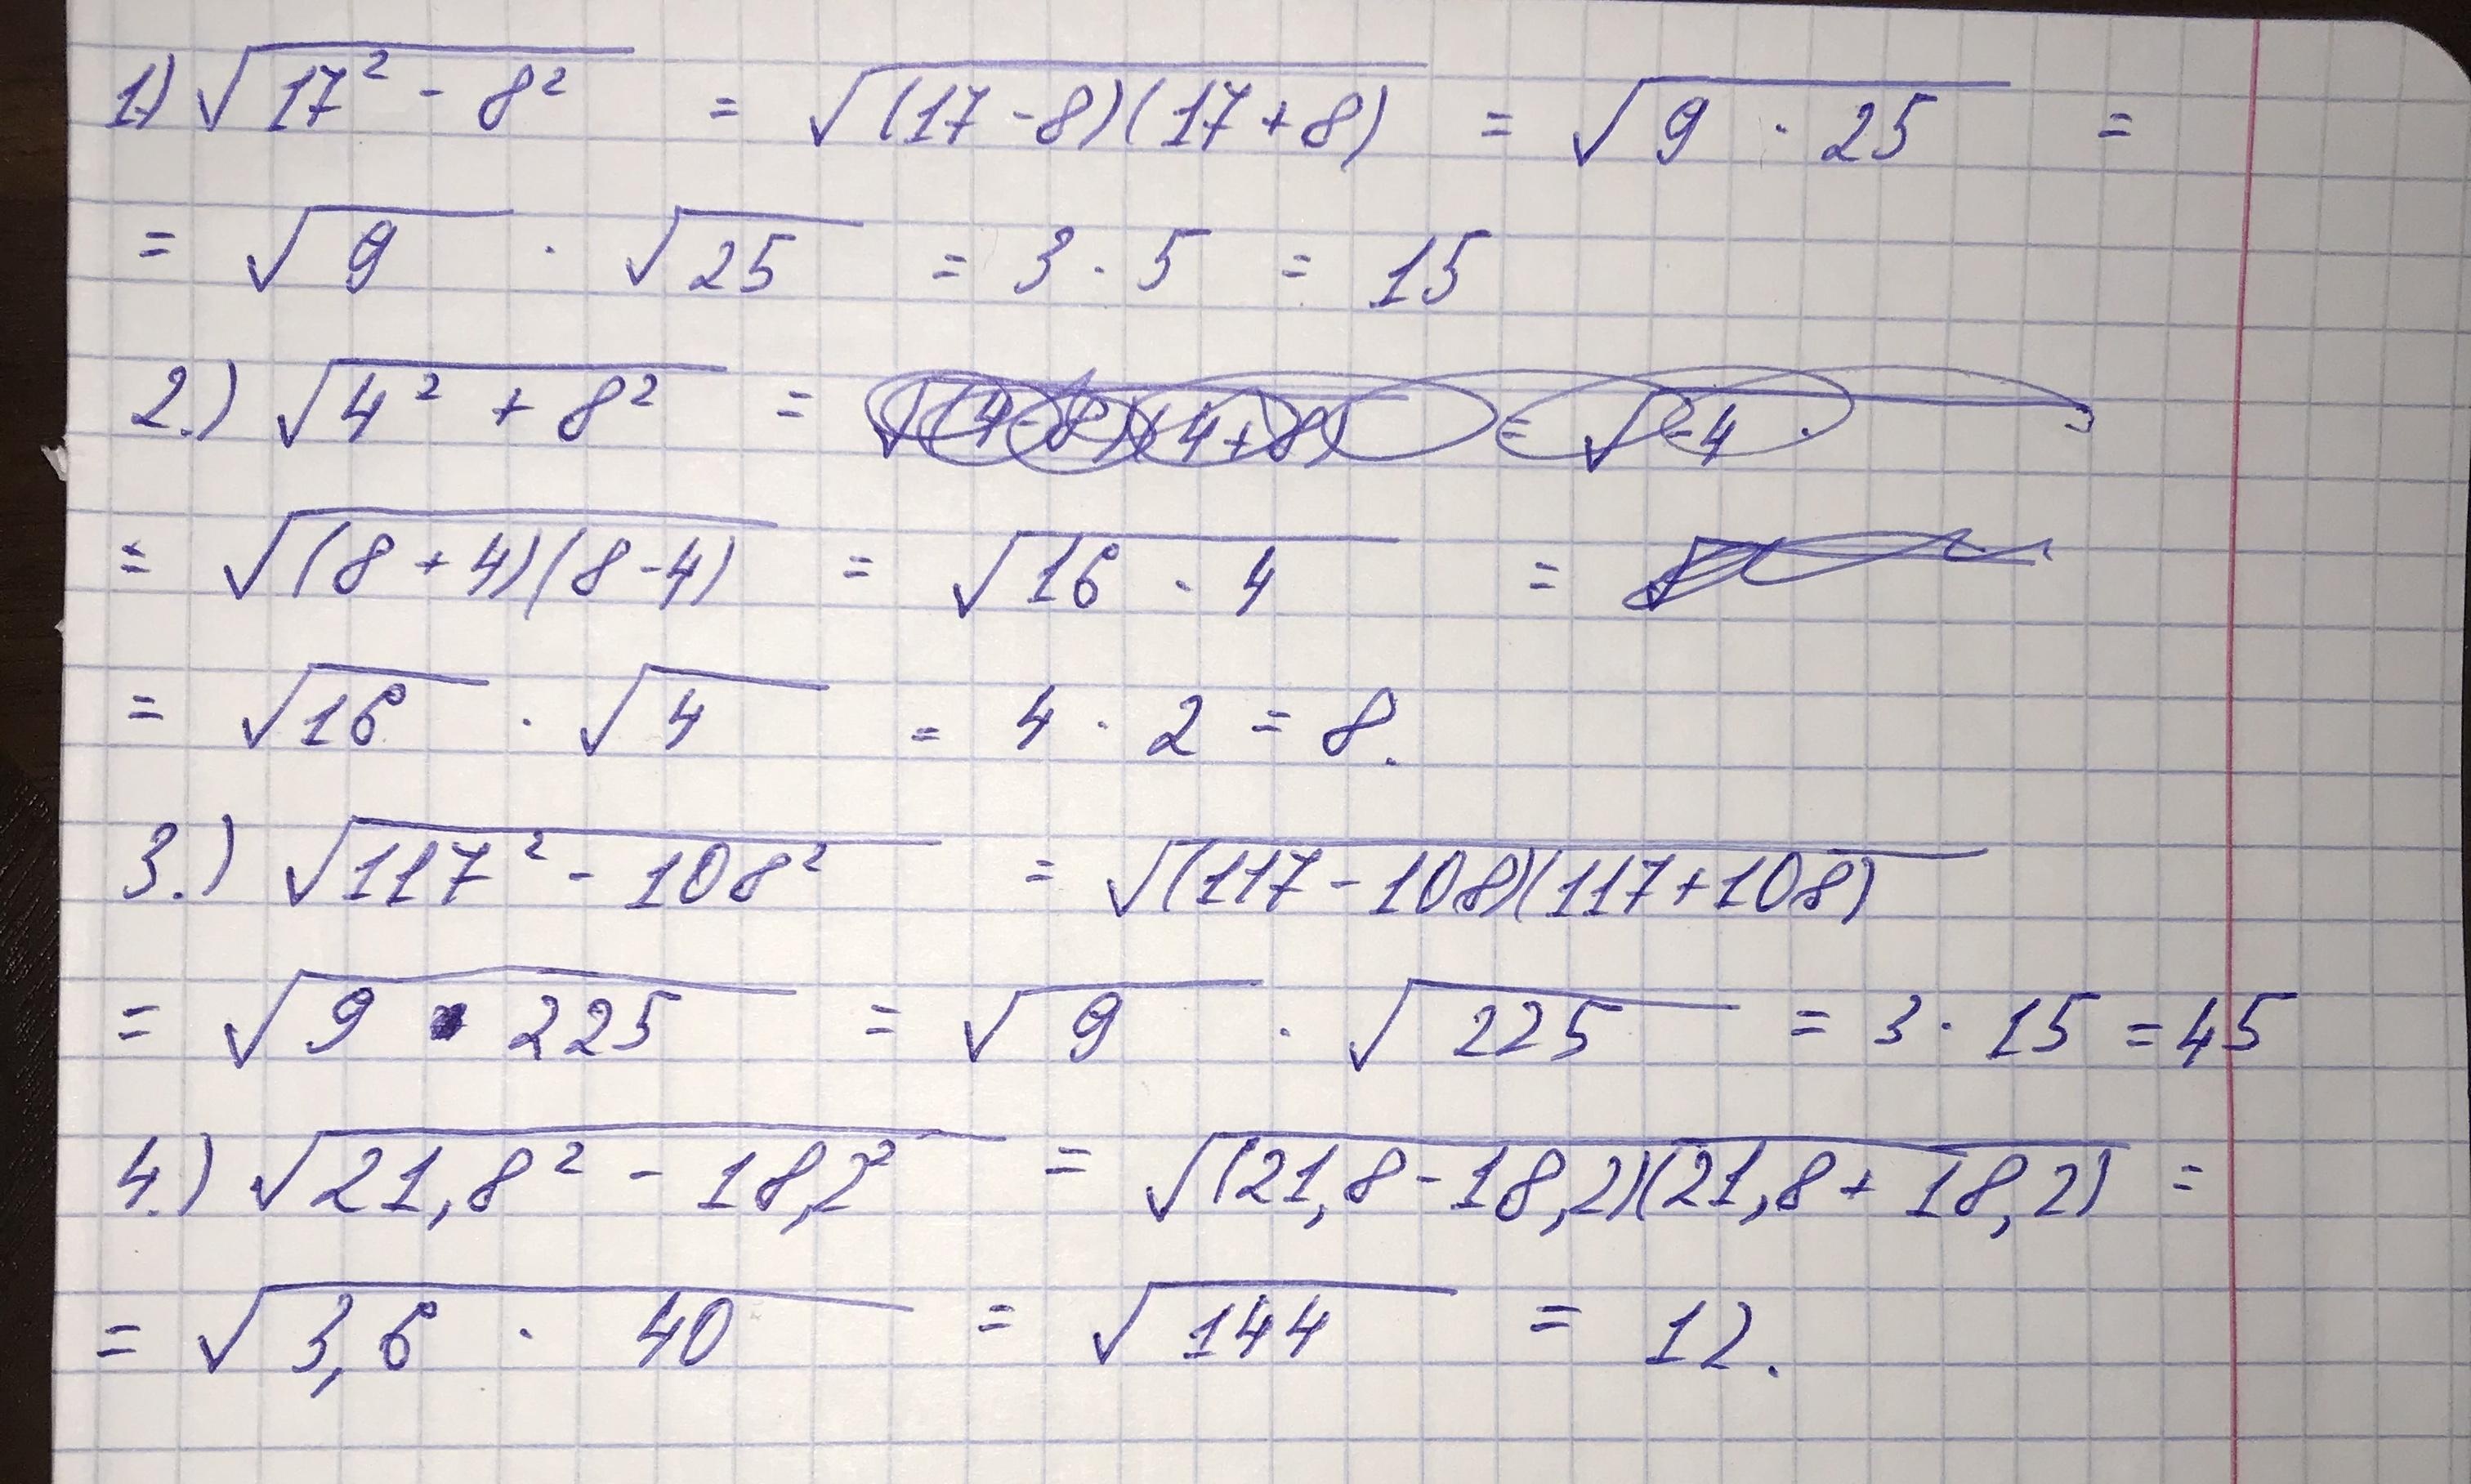 1.) √17² - 8² = √(17-8)(17+8) = √9 · 25 =
= √9 · √25 = 3 · 5 = 15
2.) √4² + 8² = √(4-8)(4+8) = √-4 ·
= √(8+4)(8-4) = √16 · 4 =
= √16 · √4 = 4 · 2 = 8.
3.) √117² - 108² = √(117-108)(117+108)
= √9 · 225 = √9 · √225 = 3 · 15 = 45
4.) √21,8² - 18,2² = √(21,8-18,2)(21,8+18,2) =
= √3,6 · 40 = √144 = 12.